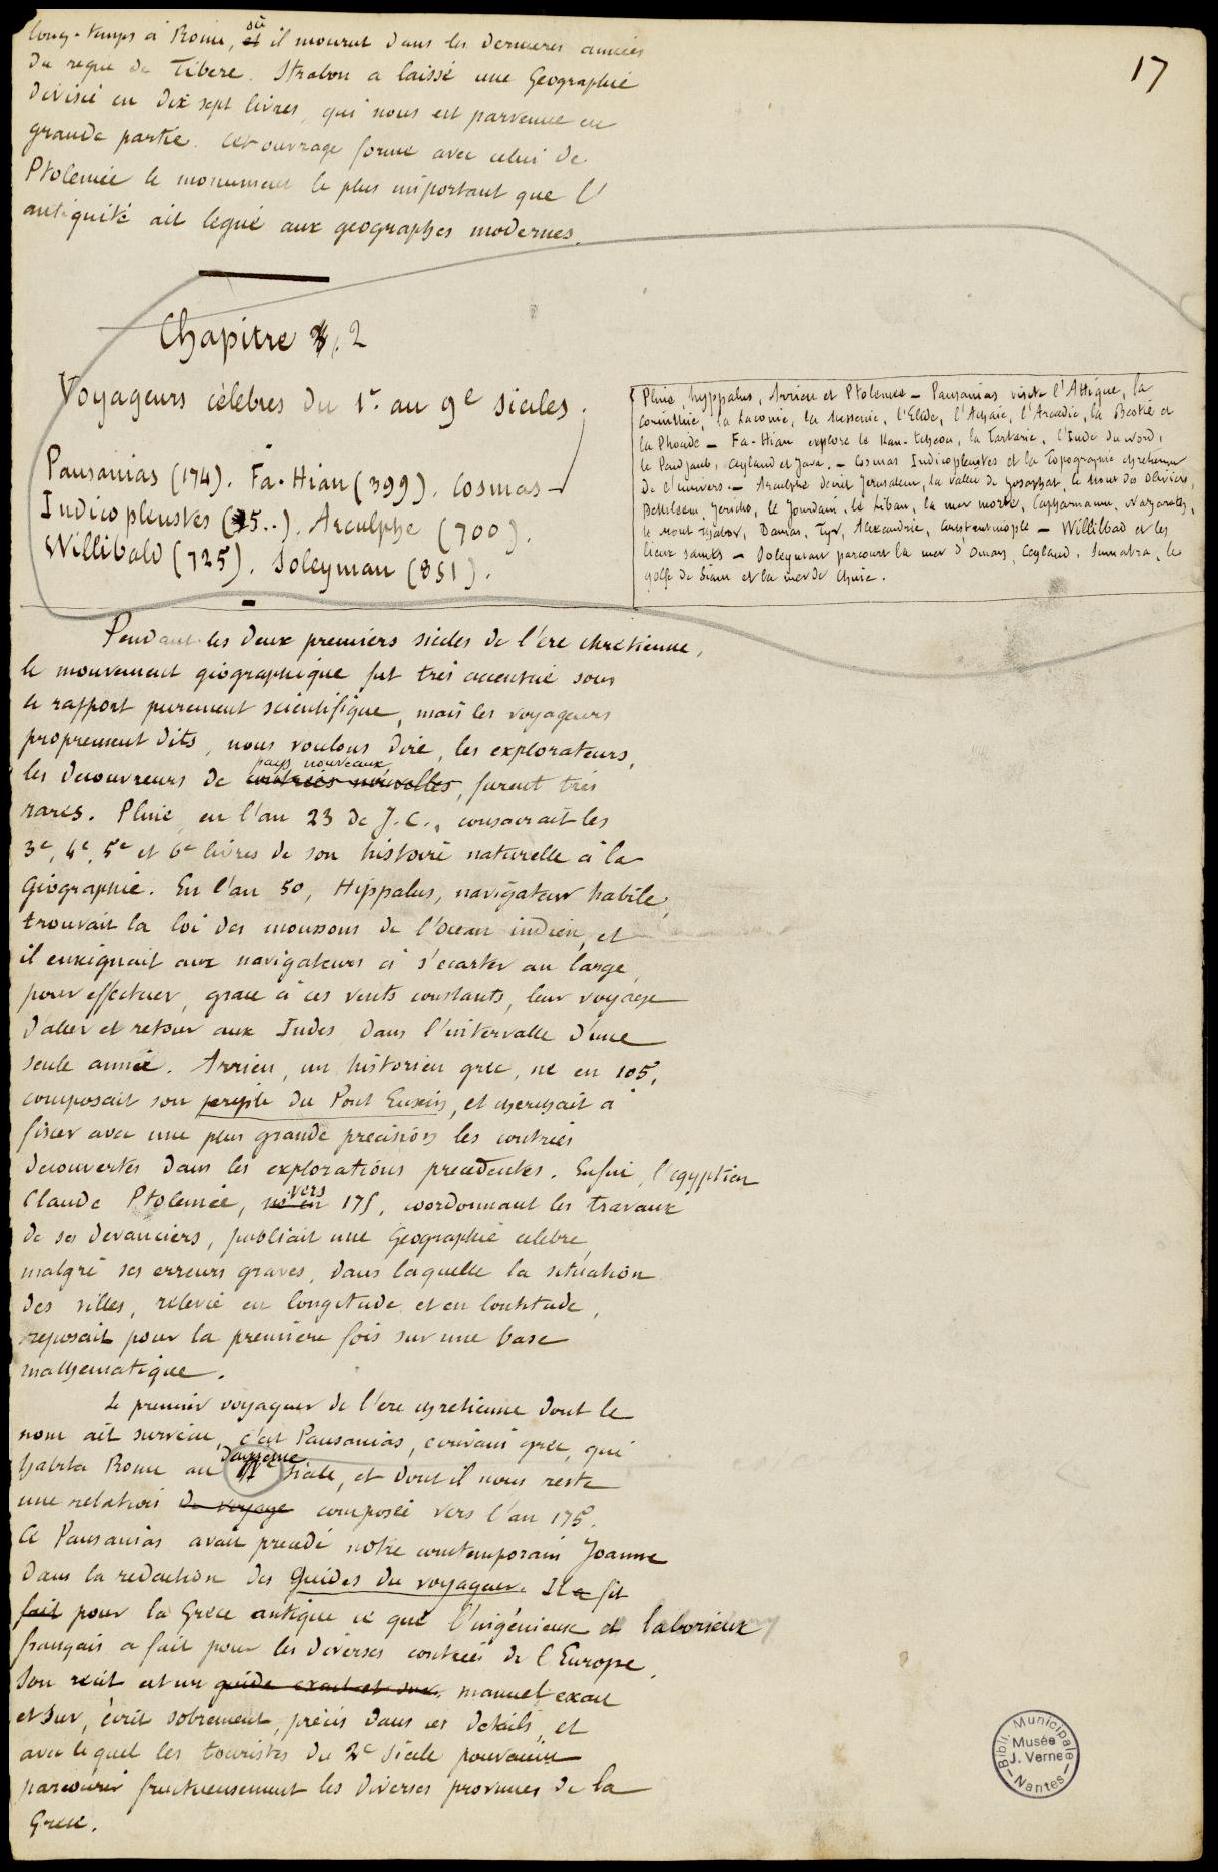 17
long-temps à Rome, et où il mourut dans les dernieres années
du regne de Tibere. Strabon a laissé une Geographie
divisée en dix sept livres, qui nous est parvenue en
grande partie. Cet ouvrage forme avec celui de
Ptolemée le monument le plus important que l'
antiquité ait legué aux geographes modernes.
Chapitre 2
Voyageurs célebres du 1r. au 9e siecles.
Pausanias (174). Fa-Hian (399). Cosmas
Indicopleustes (5..). Arculphe (700).
Willibald (725). Soleyman (851).
Pline, hyppalus, Arrien et Ptolemée – Pausanias visite l'Attique, la
Corinthie, la Laconie, la Messenie, l'Elide, l'Achaïe, l'Arcadie, la Béotie et
la Phocide – Fa-Hian explore le Kan-tcheou, la Tartarie, l'Inde du nord,
le Pendjaub, Ceyland et Java. – Cosmas Indicopleustes et la Topographie chretienne
de l'univers. – Arculphe decrit Jerusalem, la vallée de Josaphat, le Mont des Oliviers,
Bethleem, Jericho, le Jourdain, le Liban, la mer morte, Capharnaum, Nazareth,
le Mont Thabor, Damas, Tyr, Alexandrie, Constantinople – Willibad et les
lieux saints – Soleyman parcourt la mer d'Oman, Ceyland, Sumatra, le
golfe de Siam et la mer de Chine.
Pendant les deux premiers siecles de l'ère chretienne,
le mouvement géographique fut très accentué sous
le rapport purement scientifique, mais les voyageurs
proprement dits, nous voulons dire, les explorateurs,
les decouvreurs de contrées nouvelles pays nouveaux, furent très
rares. Pline, en l'an 23 de J.C., consacrait les
3e, 4e, 5e et 6e livres de son histoire naturelle à la
Géographie. En l'an 50, Hippalus, navigateur habile,
trouvait la loi des moussons de l'Ocean indien, et
il enseignait aux navigateurs à s'ecarter au large,
pour effectuer, grace à ces vents constants, leur voyage
d'aller et retour aux Indes dans l'intervalle d'une
seule année. Arrien, un historien grec, né en 105,
composait son periple du Pont Euxin, et cherchait à
fixer avec une plus grande precision les contrées
decouvertes dans les explorations precedentes. Enfin, l'egyptien
Claude Ptolemée, né en vers 175, coordonnant les travaux
de ses devanciers, publiait une Geographie celebre,
malgré ses erreurs graves, dans laquelle la situation
des villes, relevée en longitude et en lontitude,
reposait pour la premiere fois sur une base
mathematique.
Le premier voyageur de l'ere chretienne dont le
nom ait survécu, c'est Pausanias, ecrivain grec, qui
habita Rome au deuxieme siecle, et dont il nous reste
une relation de voyage composée vers l'an 175.
Ce Pausanias avait precedé notre contemporain Joanne
dans la redaction des Guides du voyageur. Il a fit
fait pour la Grèce antique ce que l'ingénieux et laborieux
français a fait pour les diverses contrées de l'Europe.
Son recit est un guide exact et sur, manuel exact
et sur, écrit sobrement, précis dans ses details, et
avec lequel les touristes du 2e siecle pouvaient
parcourir fructueusement les diverses provinces de la
Grece.
Bibli. Municipale
Musée
J. Verne
Nantes